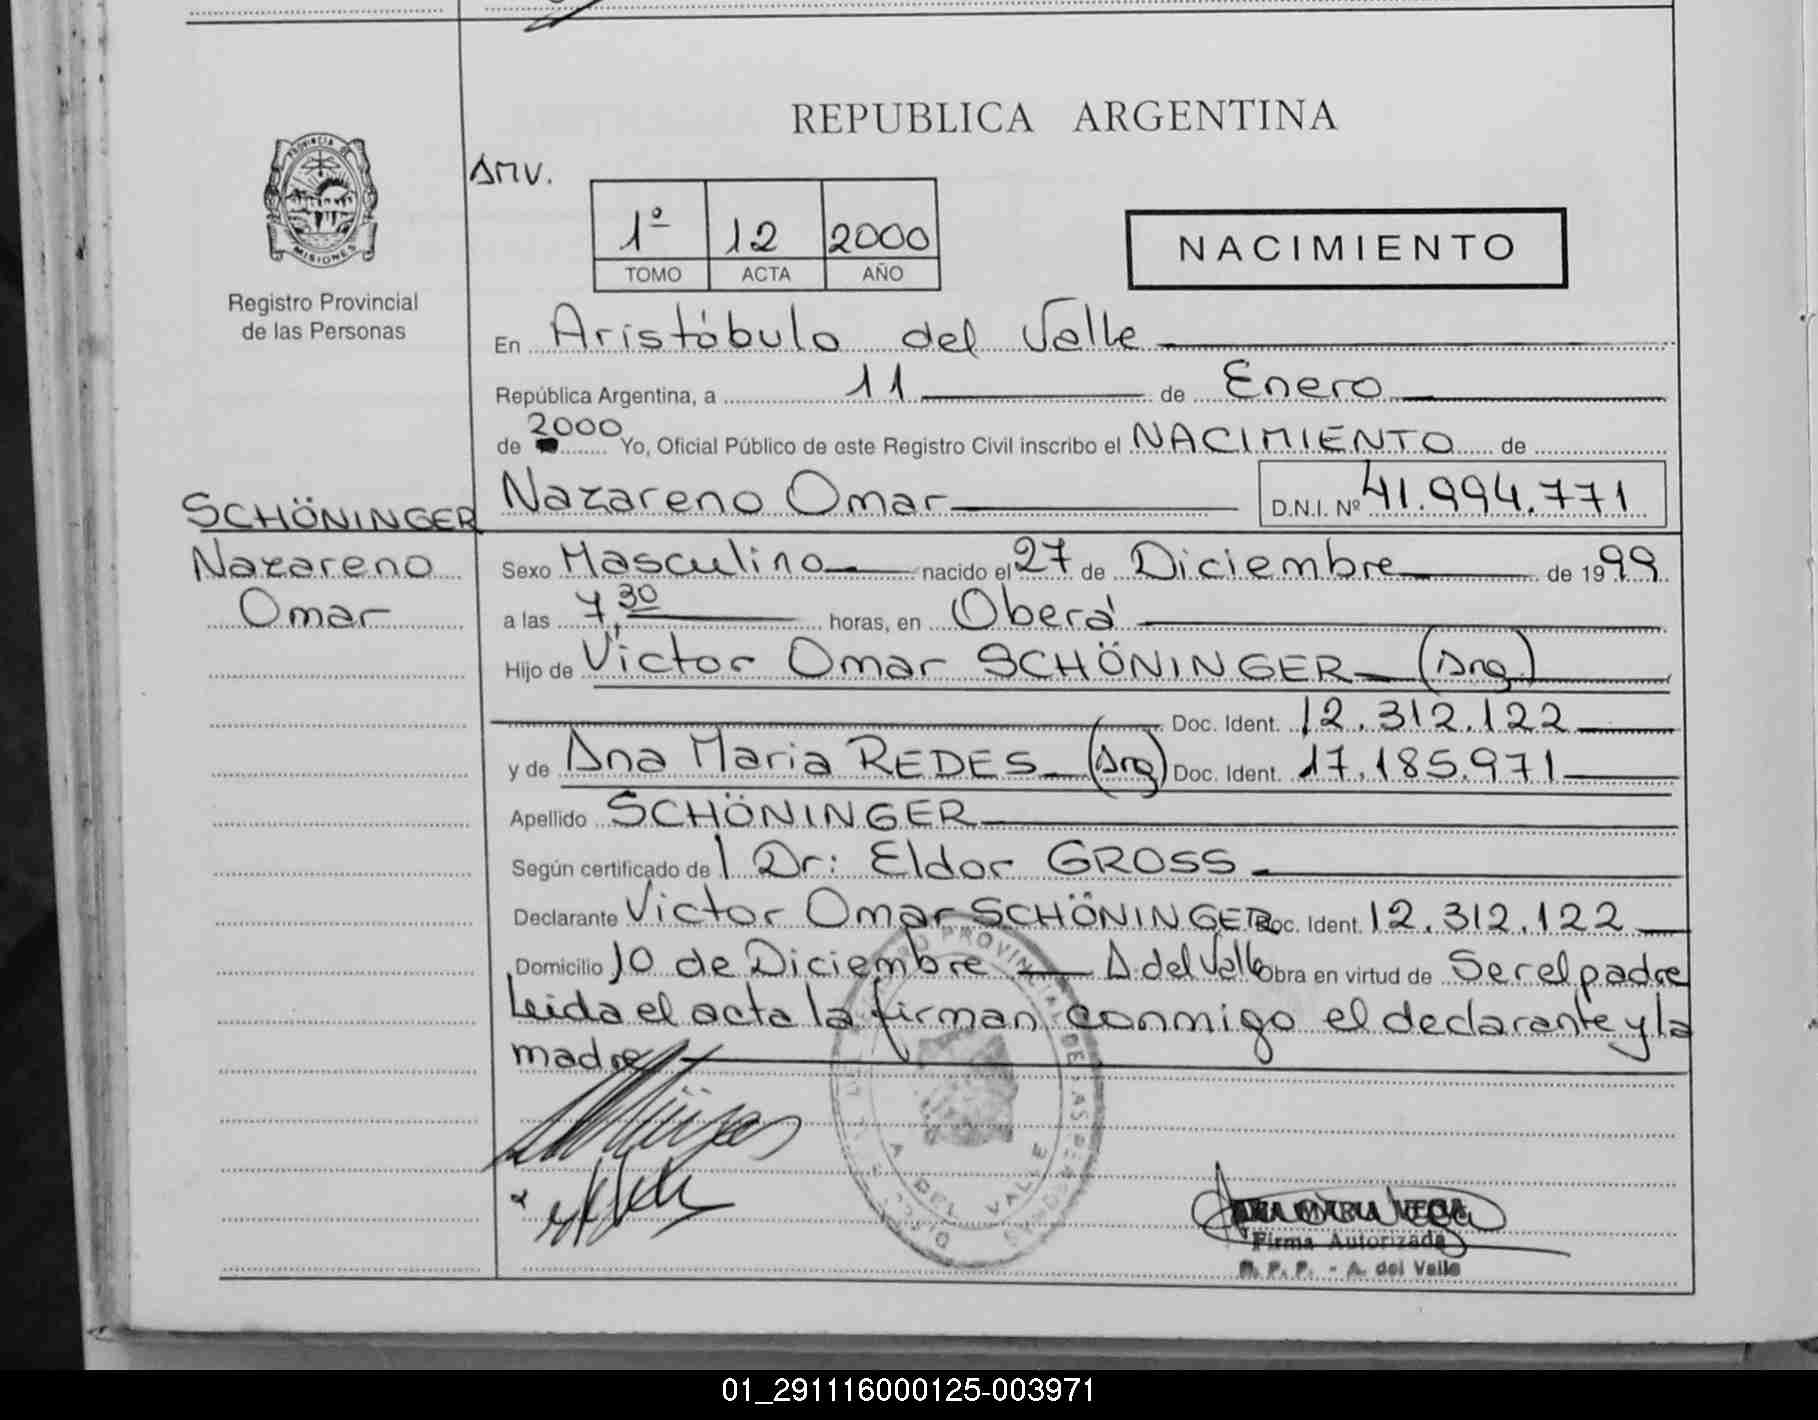 REPUBLICA ARGENTINA
PROVINCIA DE
MISIONES
Registro Provincial
de las Personas
AMV.
1º 12 2000
TOMO ACTA AÑO
NACIMIENTO
En Aristóbulo del Valle
República Argentina, a 11 de Enero
de 2000 Yo, Oficial Público de este Registro Civil inscribo el NACIMIENTO de
SCHÖNINGER
Nazareno
Omar
Nazareno Omar D.N.I. Nº 41.994.771
Sexo Masculino nacido el 27 de Diciembre de 1999
a las 7,30 horas, en Oberá
Hijo de Victor Omar SCHÖNINGER (Arg.)
Doc. Ident. 12.312.122
y de Ana Maria REDES (Arg) Doc. Ident. 17.185.971
Apellido SCHÖNINGER
Según certificado de l Dr: Eldor GROSS
Declarante Victor Omar SCHÖNINGER Doc. Ident. 12.312.122
Domicilio 10 de Diciembre A. del Valle Obra en virtud de Ser el padre
Leida el acta la firman conmigo el declarante y la
madre
REGISTRO PROVINCIAL DE LAS PERSONAS
A. DEL VALLE
ANA MARIA VEGA
Firma Autorizada
R. P. P. - A. del Valle
01_291116000125-003971